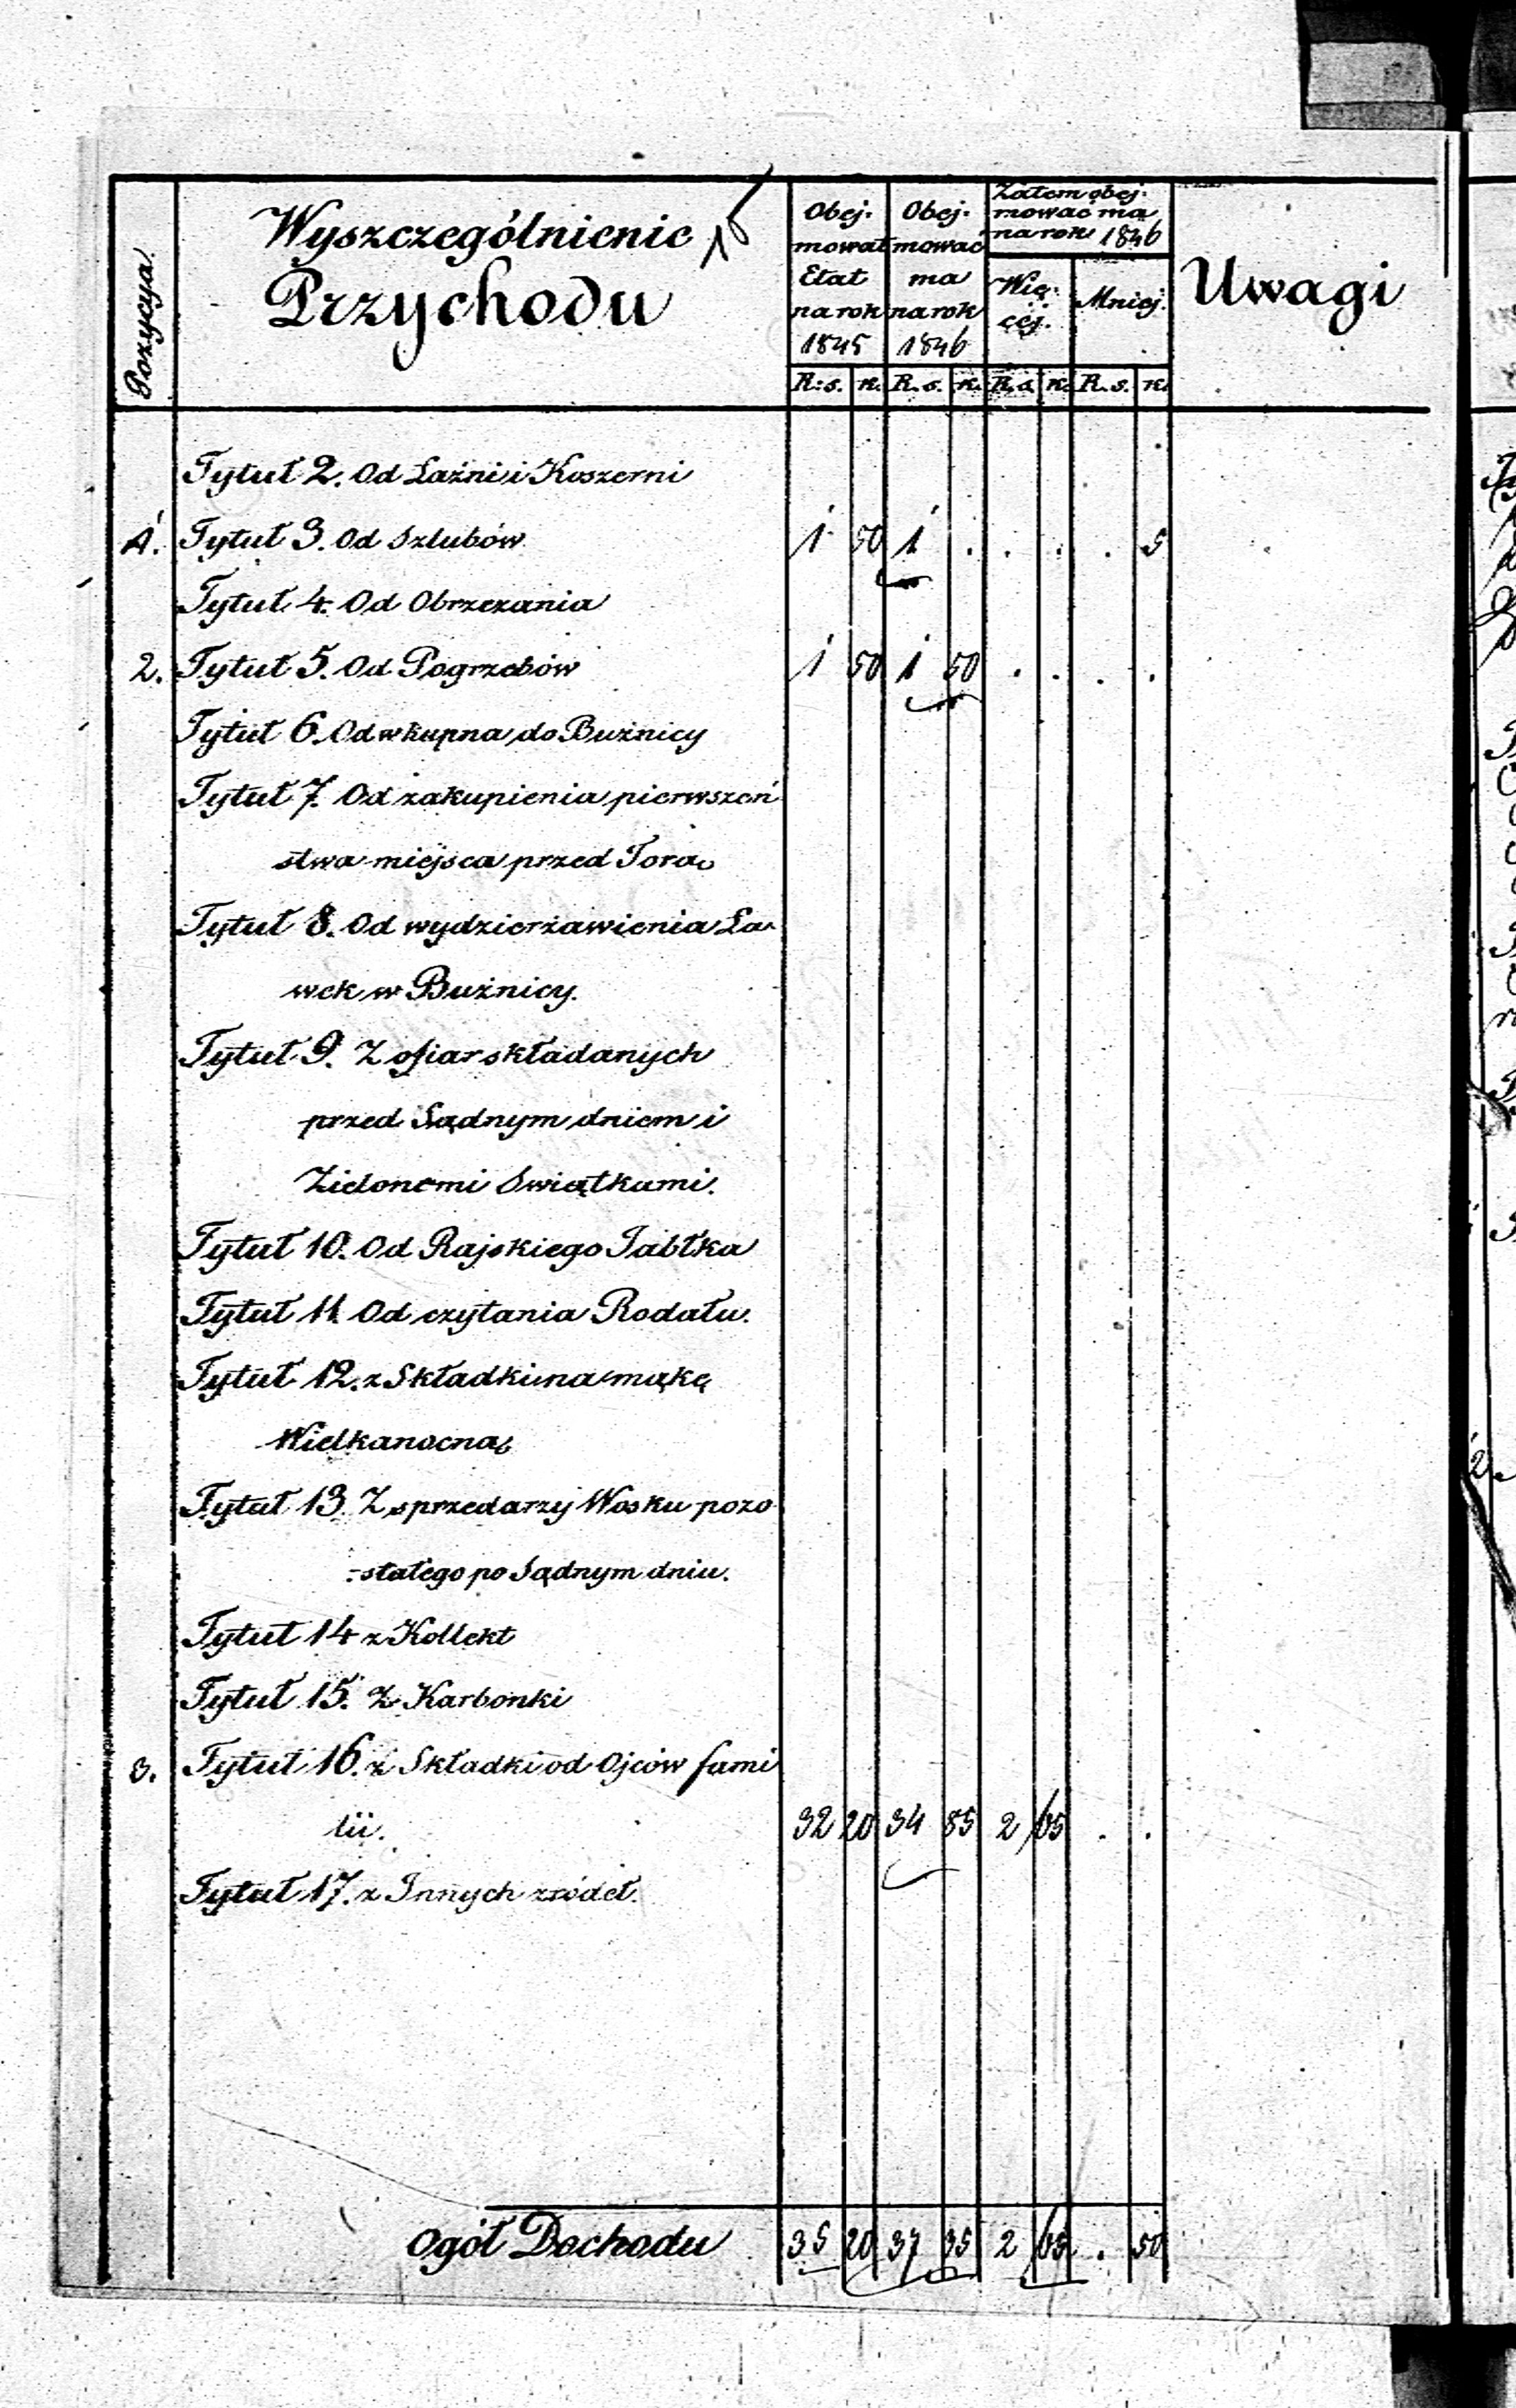 Pozycya.
Wyszczególnienie
Przychodu
Obej-
mował
Etat
na rok
1845
Obej-
mować
ma
na rok
1846
Zatem obej-
mować ma
na rok 1846
Wię-
cej.
Mniej.
Uwagi
R. s. k. R. s. k. R. s. k. R. s. k.
Tytuł 2. Od Łaźni i Koszerni
1. Tytuł 3. Od Szlubów 1 50 1 . . . . 5
Tytuł 4. Od Obrzezania
2. Tytuł 5. Od Pogrzebów 1 50 1 50 . . . .
Tytuł 6. Od wkupna do Bużnicy
Tytuł 7. Od zakupienia pierwszeń
stwa miejsca przed Torą
Tytuł 8. Od wydzierżawienia Ła-
wek w Bużnicy.
Tytuł 9. Z ofiar składanych
przed Sądnym dniem i
Zielonemi Swiątkami.
Tytuł 10. Od Rajskiego Jabłka
Tytuł 11. Od czytania Rodału.
Tytuł 12. z Składki na mąkę
Wielkanocną
Tytuł 13. Z sprzedarzy Wosku pozo
-stałego po Sądnym dniu.
Tytuł 14 z Kollekt
Tytuł 15. Z Karbonki
3. Tytuł 16. z Składki od Ojców fami
lii. 32 20 34 85 2 65 . .
Tytuł 17. z Innych zródeł.
Ogół Dochodu 35 20 37 35 2 65 . 50